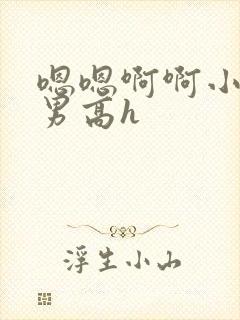 嗯嗯啊啊小
男高h
浮生小山